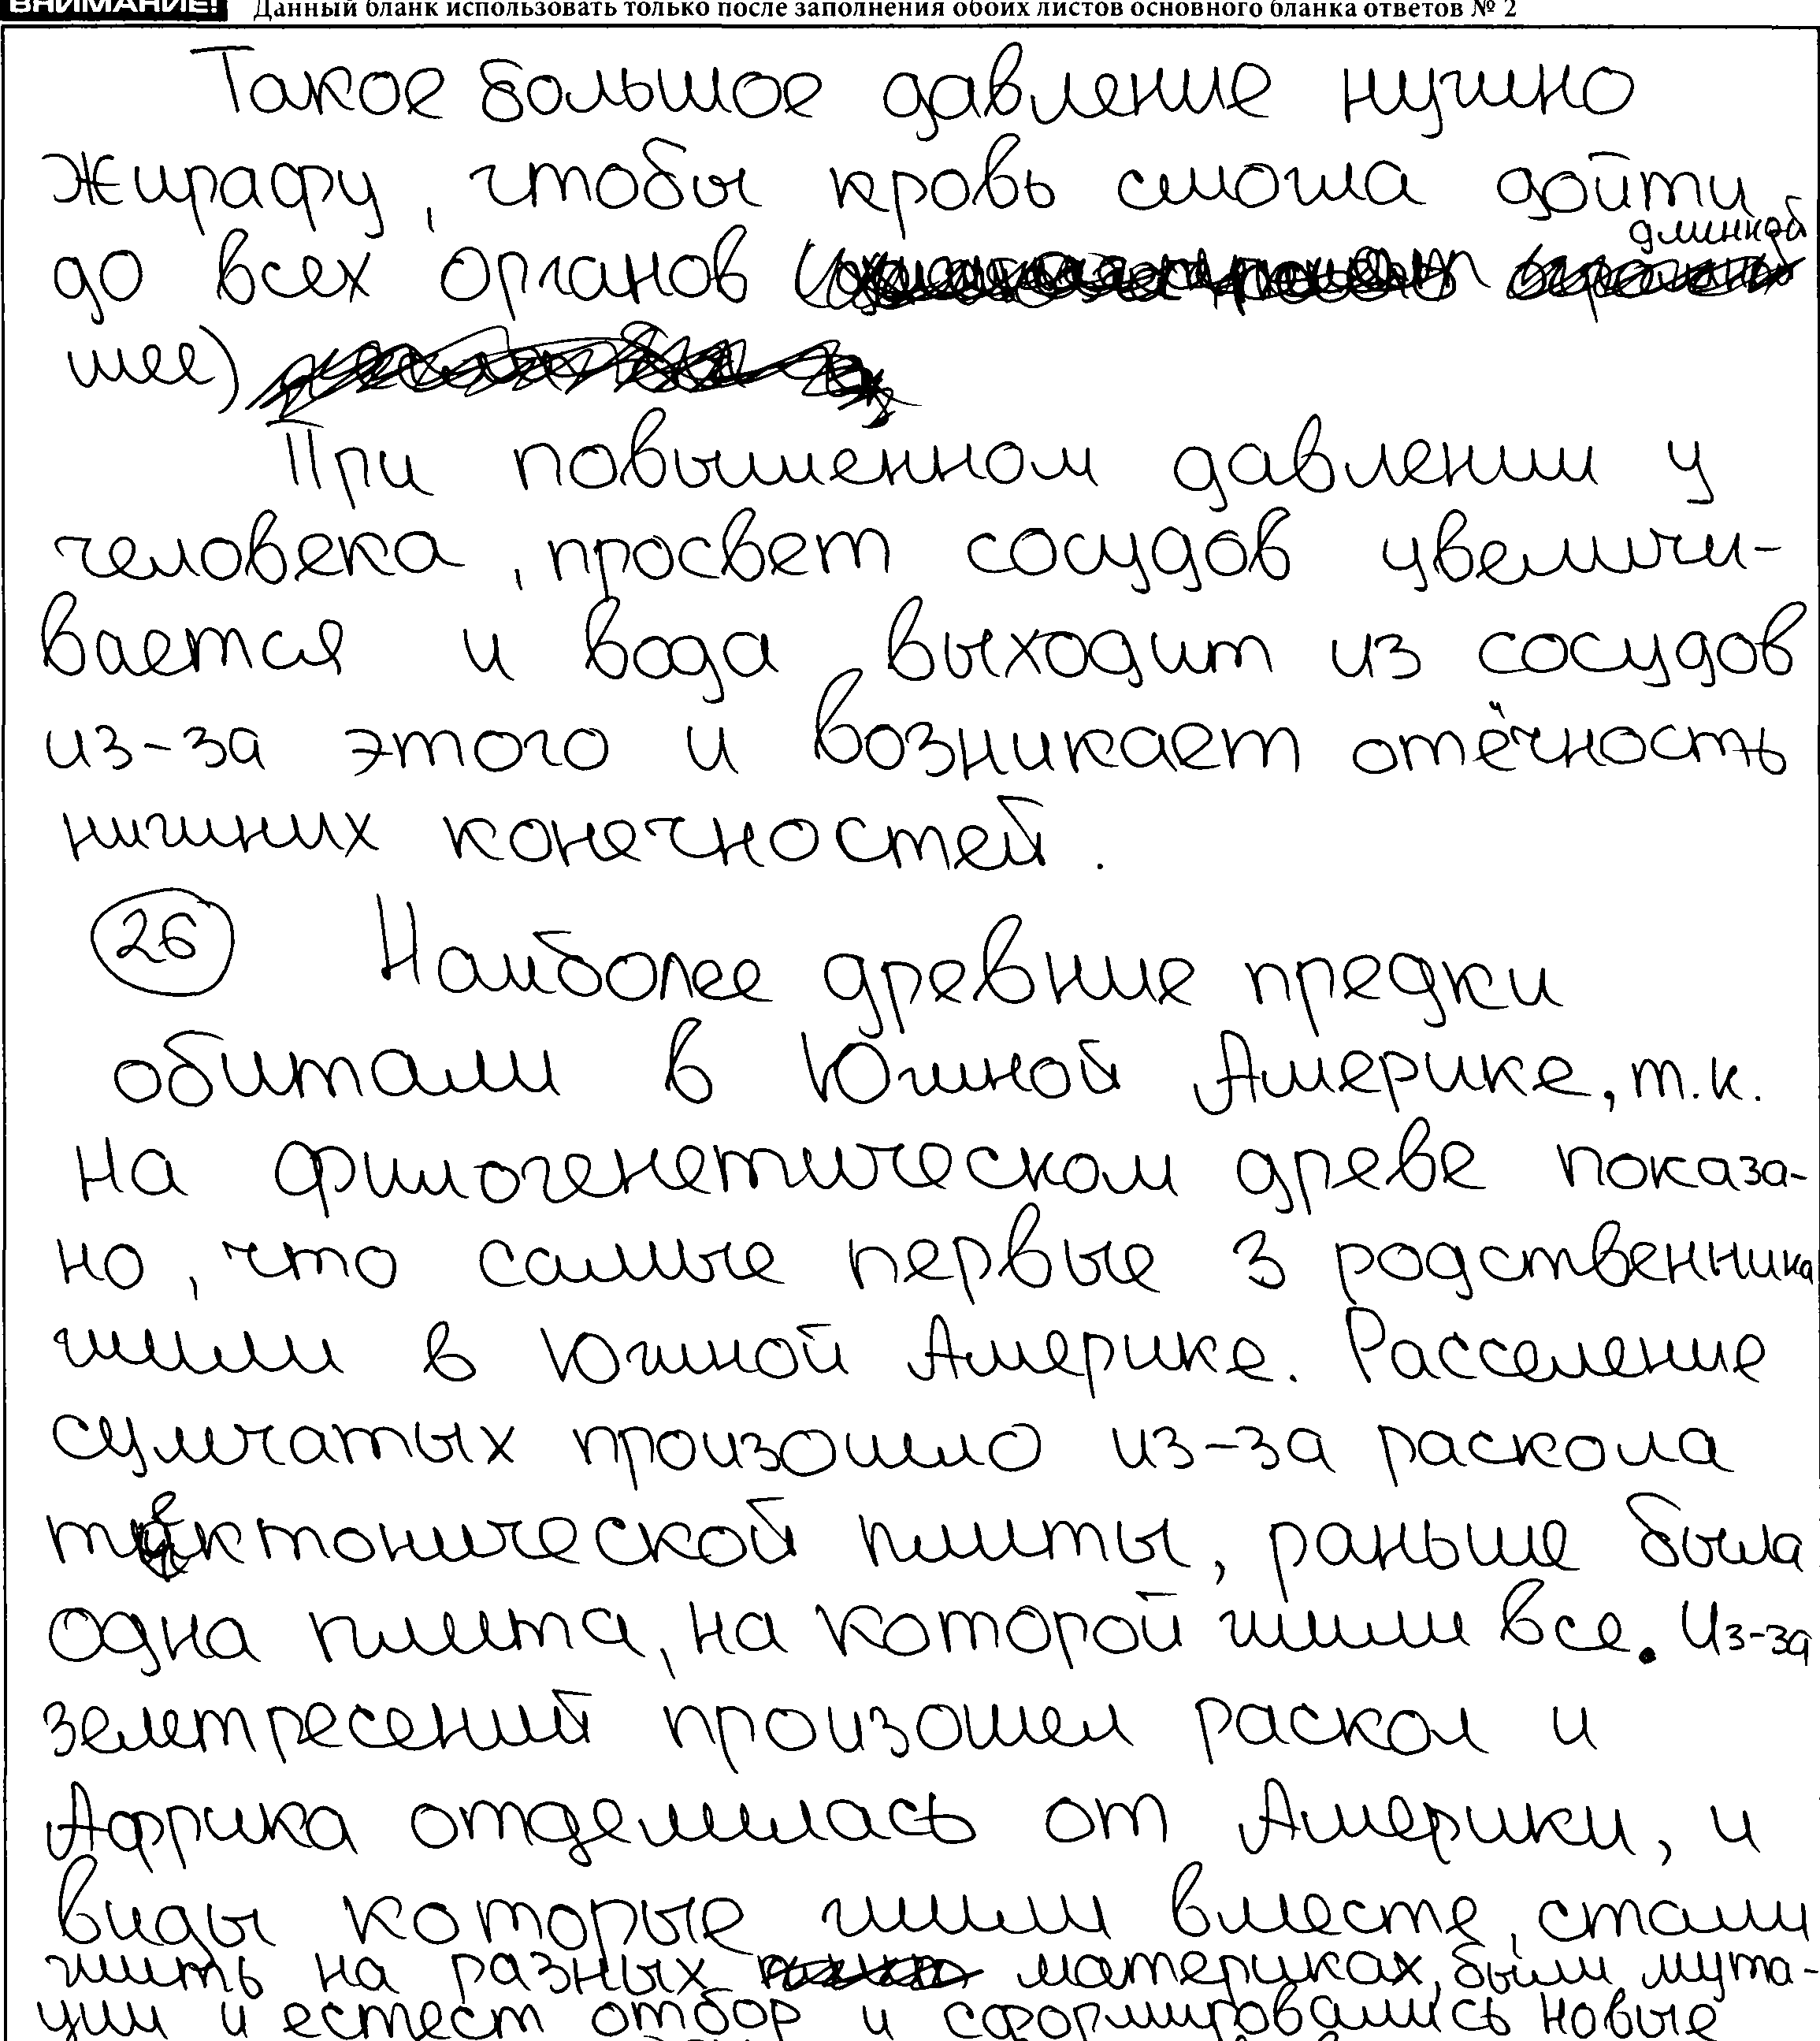 ВНИМАНИЕ! Данный бланк использовать только после заполнения обоих листов основного бланка ответов № 2
Такое большое давление нужно
жирафу, чтобы кровь смогла дойти
до всех органов (
длинной
шее)
При повышенном давлении у
человека, просвет сосудов увеличи-
вается и вода выходит из сосудов
из-за этого и возникает отёчность
нижних конечностей.
26 Наиболее древние предки
обитали в Южной Америке, т.к.
на филогенетическом древе показа-
но, что самые первые 3 родственника
жили в Южной Америке. Расселение
сумчатых произошло из-за раскола
тектонической плиты, раньше была
одна плита, на которой жили все. Из-за
землтресений произошел раскол и
Африка отделилась от Америки, и
виды которые жили вместе, стали
жить на разных материках, были мута-
ции и естест отбор и сформировались новые